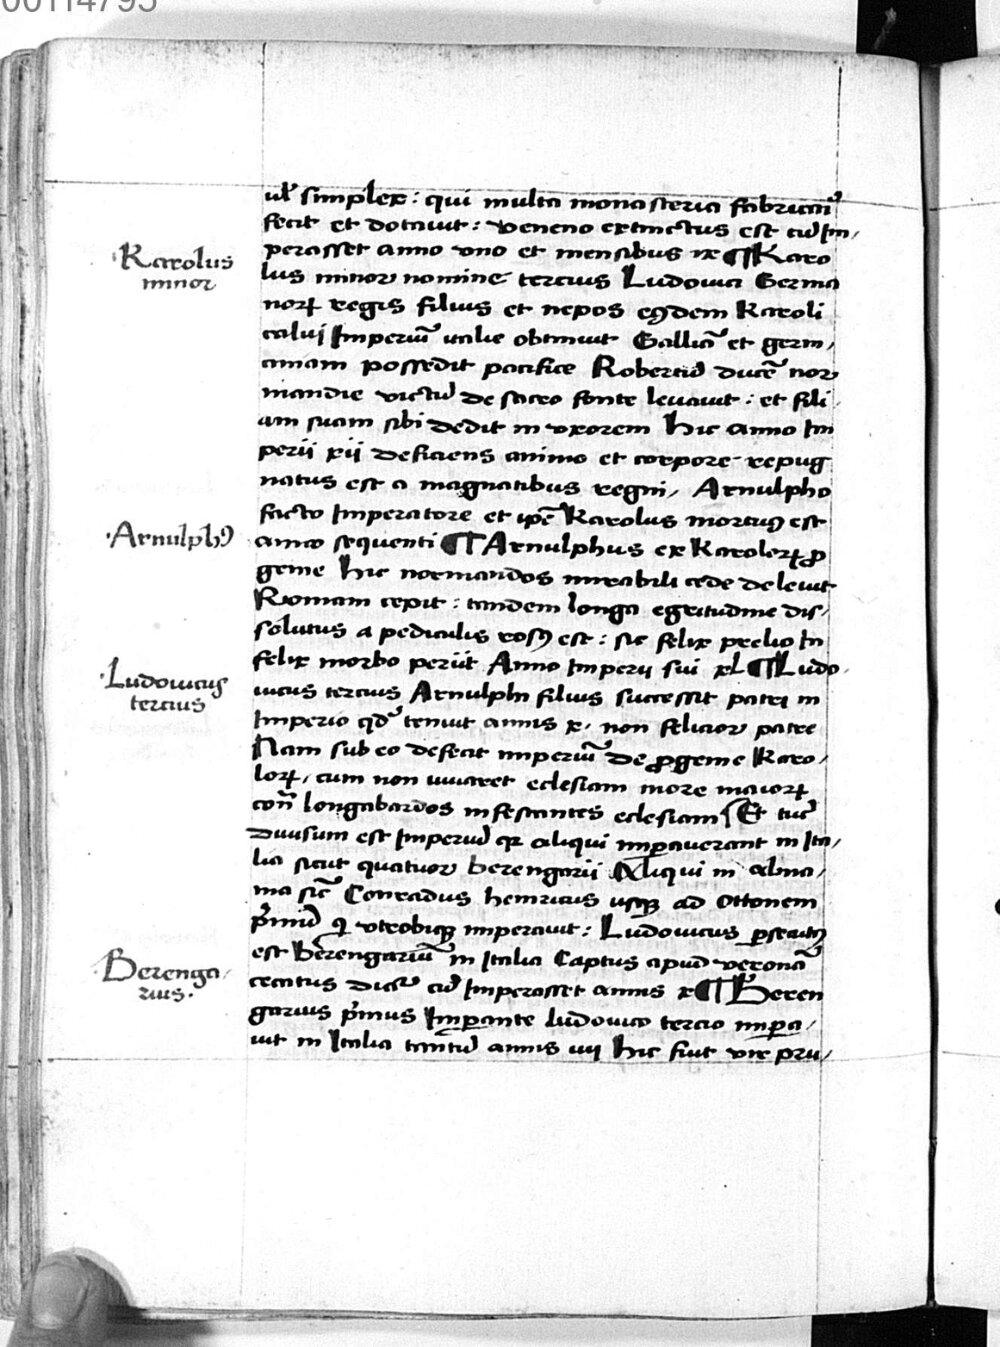 00114795
ul' simplex : qui multa monasteria fabricari
fecit et dotauit : veneno extinctus est cū Im/
perasset anno vno et mensibus ix ¶ Karo
Karolus
minor
lus minor nomine tercius Ludouici Germa
norꝝ regis filius et nepos eꝯdem Karoli
calui Imperiū italie obtinuit Galliā et germ/
aniam possedit pacifice Robertū ducē nor
mandie victū de sacro fonte leuauit : et fili
am suam sibi dedit in vxorem hic anno Im
perii xii deficiens animo et corpore repug
natus est a magnatibus regni / Arnulpho
facto Imperatore et ipē Karolus mortuꝯ est
Arnulphꝯ
anno sequenti ¶ Arnulphus ex Karolorꝝ ꝓ
genie hic normandos mirabili cede deleuit
Romam cepit : tandem longa egritudine dis/
solutus a pediculis rosꝯ est : sic felix prelio In
felix morbo periit Anno Imperii sui xl ¶ Ludo
Ludouicus
tercius
uicus tercius Arnulphi filius successit patri in
Imperio qd' tenuit annis x. non felicior patre
Nam sub eo defecit imperiū de ꝓgenie Karo/
lorꝝ / cum non iuuaret eclesiam more maiorꝝ
con̄ longabardos infestantes eclesiam Et tūc
diuisum est Imperiū qꝛ aliqui imꝑauerant in Ita/
lia sicut quatuor berengarii Aliqui in alma/
nia sic̄ Conradus henricus usqꝫ ad Ottonem
p̄mū qͥ vtrobiqꝫ imperauit : Ludouicus ꝑsecutꝯ
est berengariū in Italia Captus apud veronā
Berenga/
rius.
cecatus dicit' cū Imperasset annis x ¶ Beren
garius p̄mus Imꝑante ludouico tercio imꝑa/
uit in Italia tantū annis iiij hic fuit vir pru/